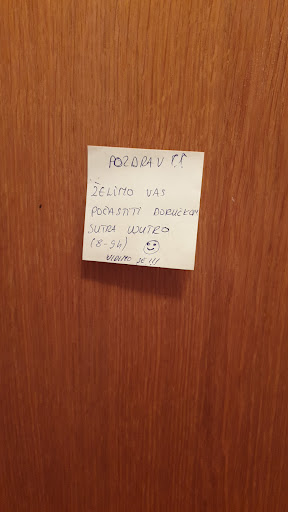 POZDRAV !!
ŽELIMO VAS
POČASTITI DORUČKOM
SUTRA UJUTRO
(8-9h)
VIDIMO SE !!!